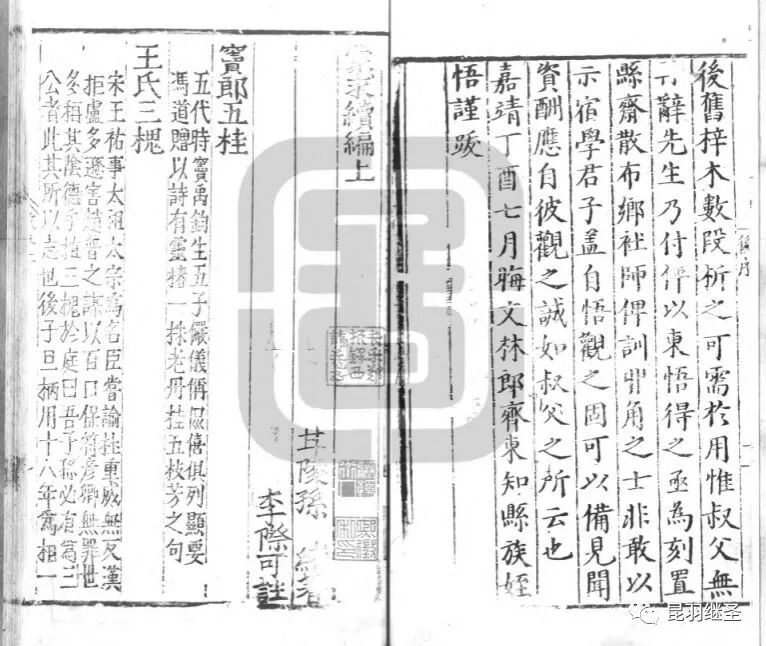 後序
後舊梓木數段析之可需於用惟叔父無
辭先生乃付伻以東悟得之亟為刻置
縣齋散布鄉社師俾訓丱角之士非敢以
示宿學君子盖自悟觀之固可以備見聞
資酬應自彼觀之誠如叔父之所云也
嘉靖丁酉七月晦文林郎齊東知縣族姪
悟謹跋
求續編上
茸陵孫 續著
李際可註
竇郎五桂
五代時竇禹鈞生五子儀儼侃偁僖俱列顯要
馮道贈以詩有靈椿一株老丹桂五枝芳之句
王氏三槐
宋王祐事太祖太宗為名臣嘗諭杜重威無反漢
拒盧多遜害趙普之謀以百口保符彥卿無罪世
多稱其陰德手植三槐於庭曰吾子孫必有為三
公者此其所以志也後子旦柄用十八年為相一
昆羽继圣